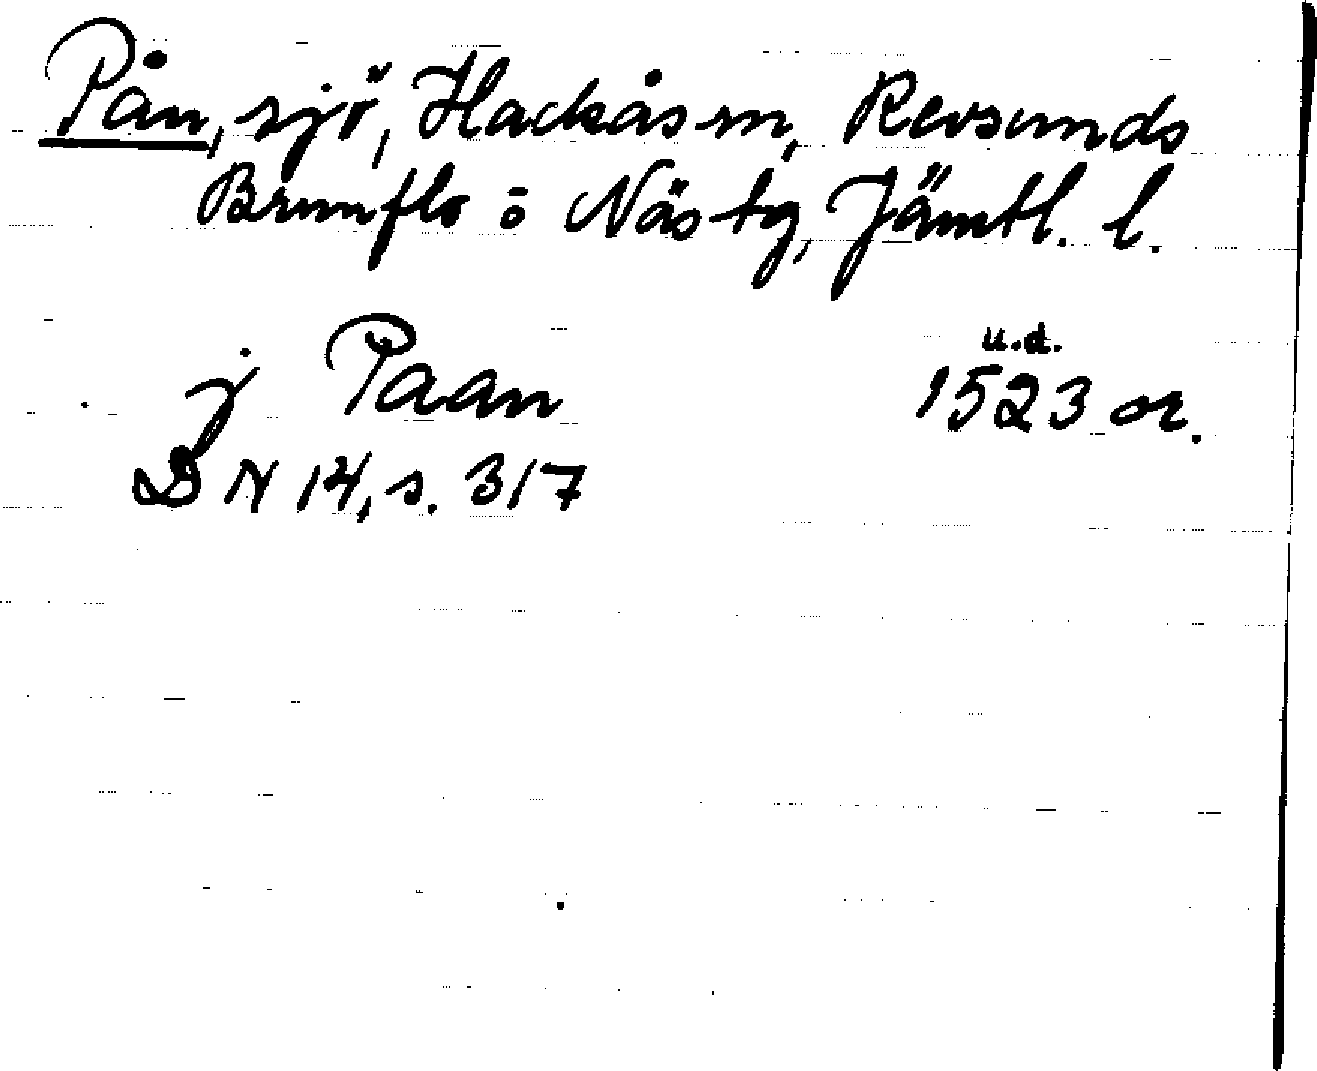 Pån, sjö, Hackås sn, Revsunds
Brunflo o Näs tg, Jämtl. l.
u.d.
j Paan 1523 or.
DN 14, s. 317